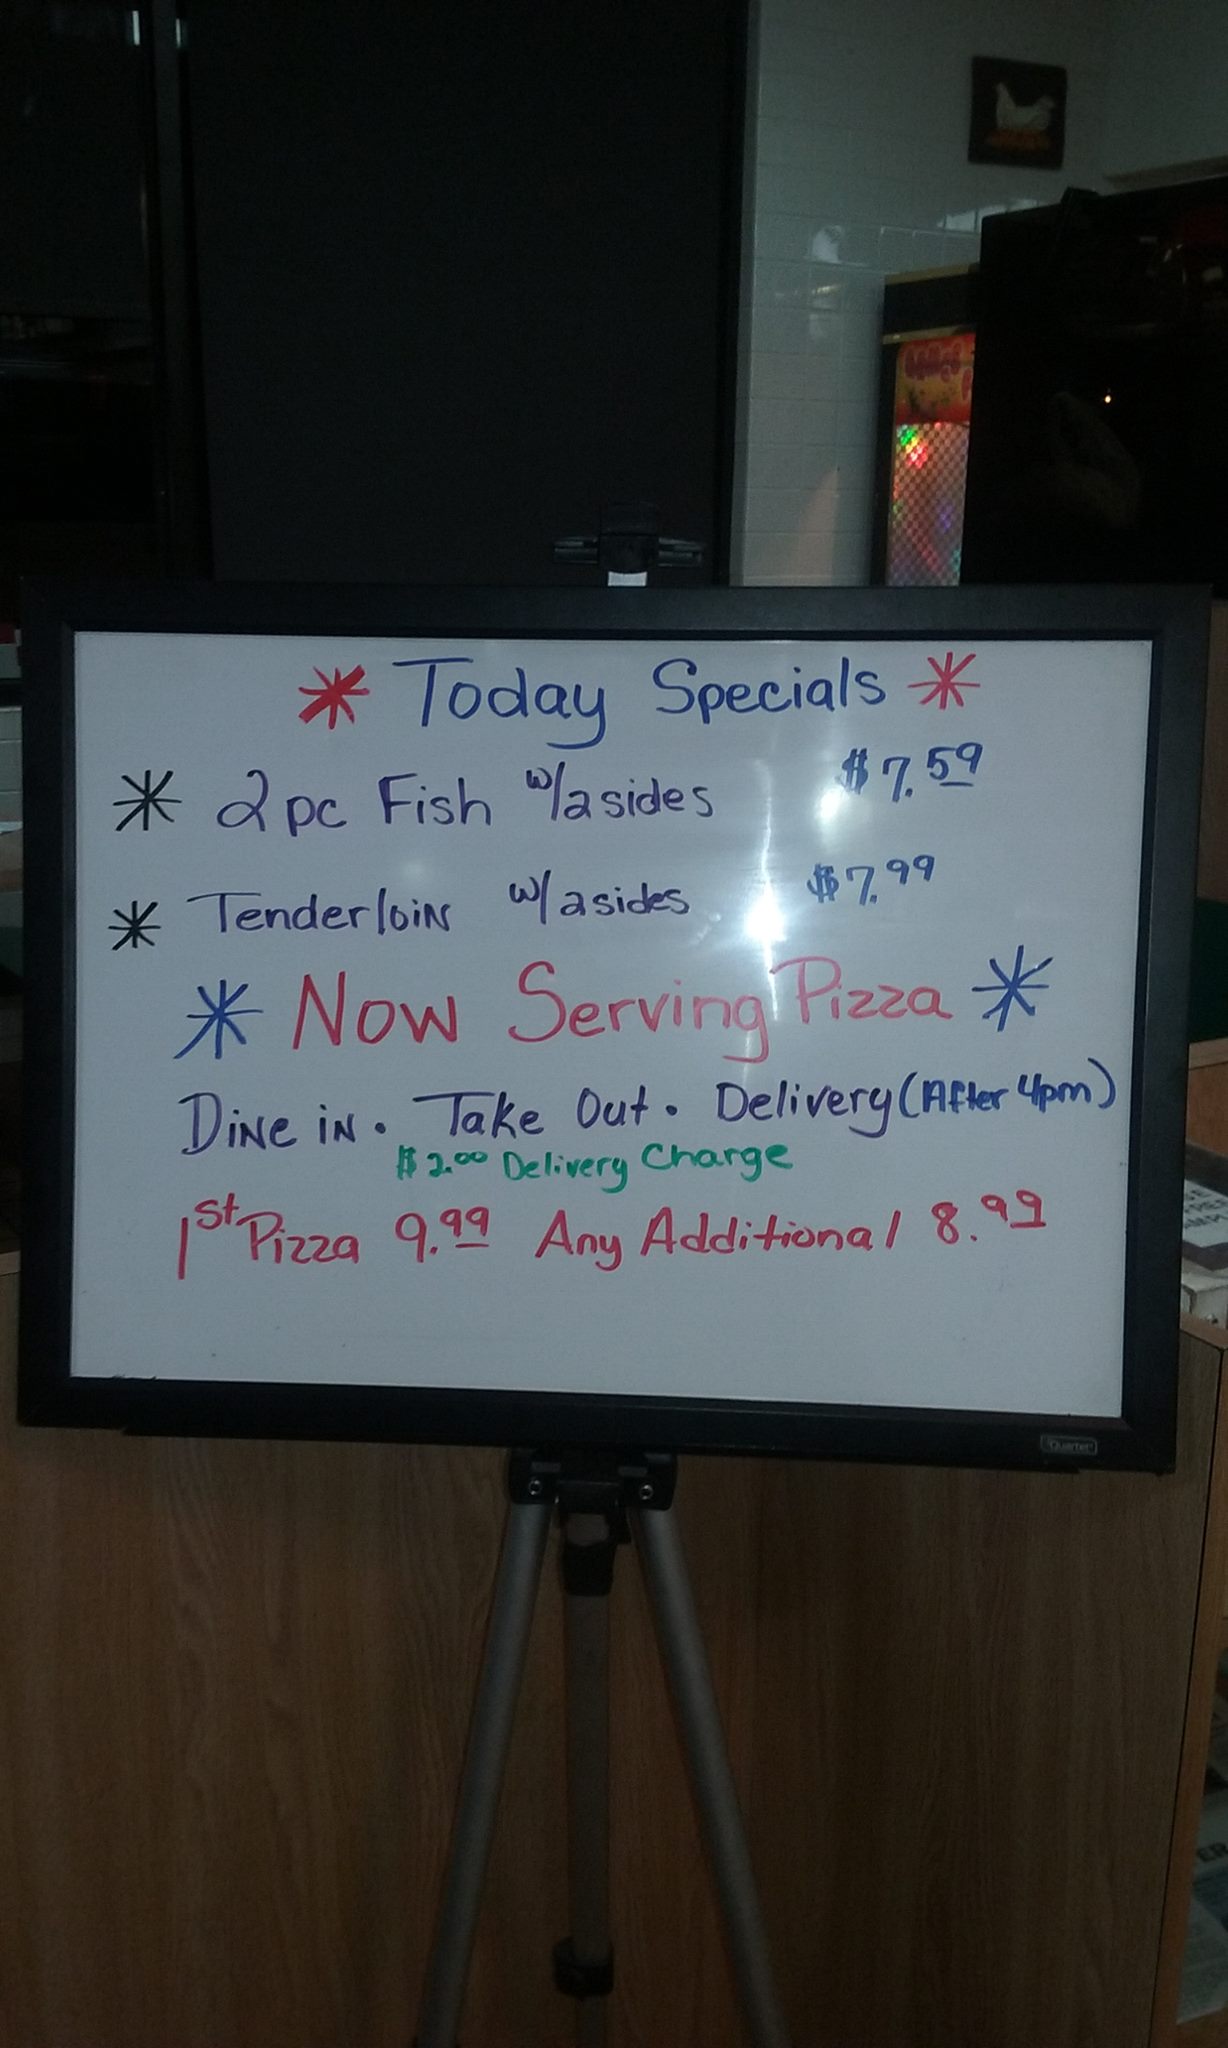 * Today Specials *
* 2pc Fish w/2sides $7.59
* Tenderloin w/2sides $7.99
* Now Serving Pizza *
Dine in. Take Out. Delivery (After 4pm)
$2.00 Delivery Charge
1st Pizza 9.99 Any Additional 8.99
Quartet